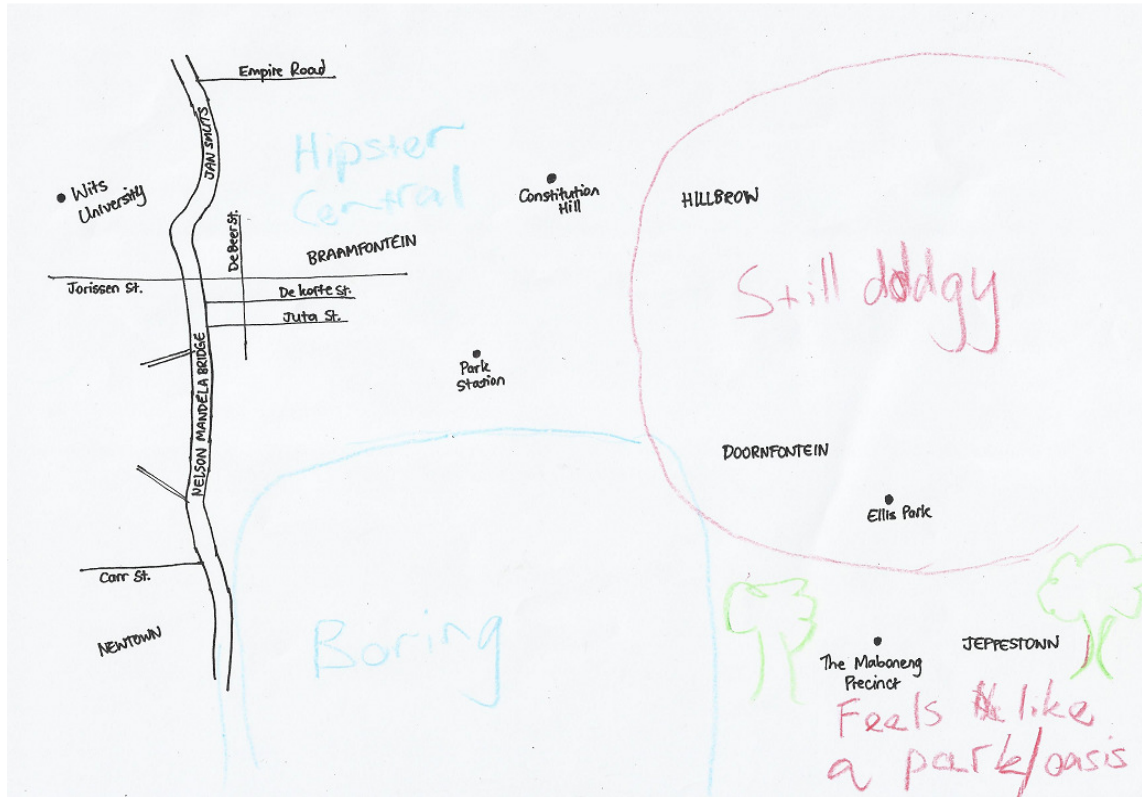 Empire Road
JAN SMUTS
Hipster
Central
Wits
University
Constitution
Hill
HILLBROW
De Beer St.
BRAAMFONTEIN
Jorissen St.
De Korte St.
Juta St.
Still dodgy
NELSON MANDELA BRIDGE
Park
Station
DOORNFONTEIN
Ellis Park
Carr St.
NEWTOWN
Boring
The Maboneng
Precinct
JEPPESTOWN
Feels like
a park/oasis